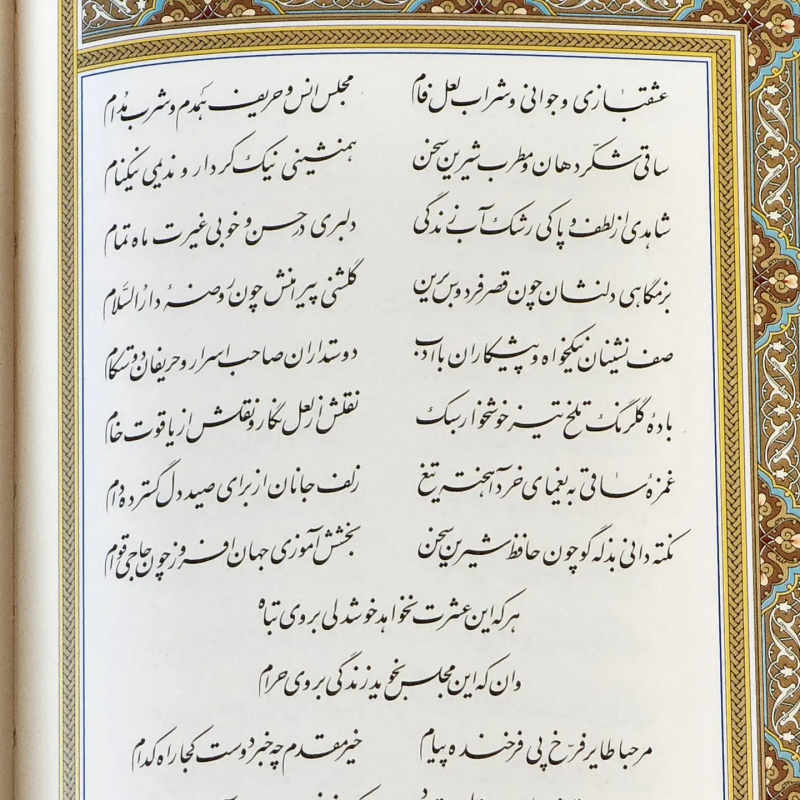 عشقبازی و جوانی و شراب لعل فام مجلس انس و حریف همدم و شرب مدام
ساقی شکّر دهان و مطرب شیرین سخن همنشینی نیک کردار و ندیمی نیکنام
شاهدی از لطف و پاکی رشک آب زندگی دلبری در حسن و خوبی غیرت ماه تمام
بزمگاهی دلنشان چون قصر فردوس برین گلشنی پیرامنش چون روضهٔ دارُالسَّلام
صف نشینان نیکخواه و پیشکاران باادب دوستداران صاحب اسرار و حریفان دوستکام
بادهٔ گلرنگ تلخ تیز خوشخوار سبک نقلش از لعل نگار و نقلش از یاقوت خام
غمزهٔ ساقی به یغمای خرد آهخته تیغ زلف جانان از برای صید دل گسترده دام
نکته دانی بذله گو چون حافظ شیرین سخن بخشش آموزی جهان افروز چون حاجی قوام
هر که این عشرت نخواهد خوشدلی بر وی تباه
وان که این مجلس نجوید زندگی بر وی حرام
مرحبا طایر فرّخ پی فرخنده پیام خیر مقدم چه خبر دوست کجا راه کدام